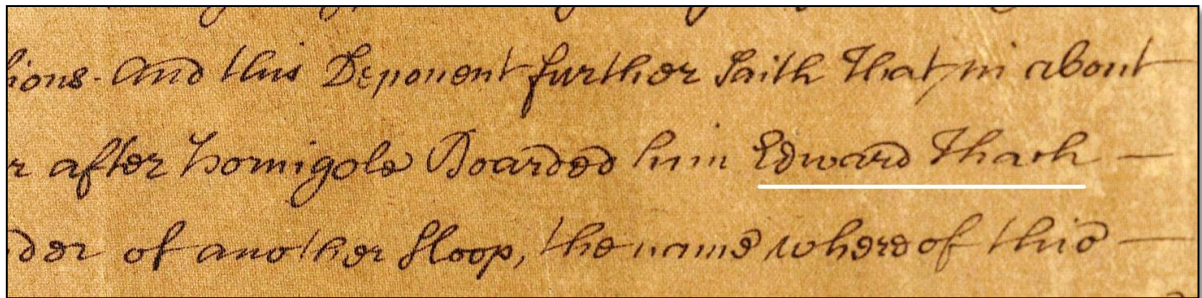 ions. And this Deponent further Saith That in about
r after hornigole Boarded him Edward Thach
der of another Sloop, the name whereof this